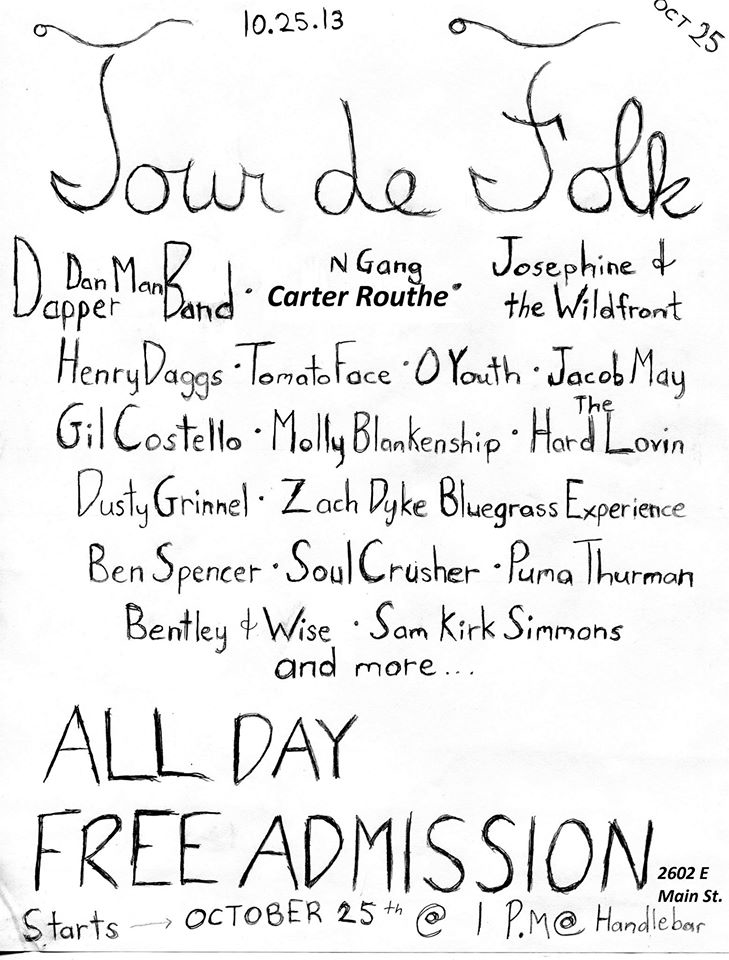 10.25.13
OCT 25
Tour de Folk
Dapper Dan Man Band · N Gang Carter Routhe · Josephine & the Wildfront
Henry Daggs · Tomato Face · O Youth · Jacob May
Gil Costello · Molly Blankenship · The Hard Lovin
Dusty Grinnel · Zach Dyke Bluegrass Experience
Ben Spencer · Soul Crusher · Puma Thurman
Bentley & Wise · Sam Kirk Simmons
and more...
ALL DAY
FREE ADMISSION
2602 E
Main St.
Starts → OCTOBER 25th @ 1 P.M @ Handlebar